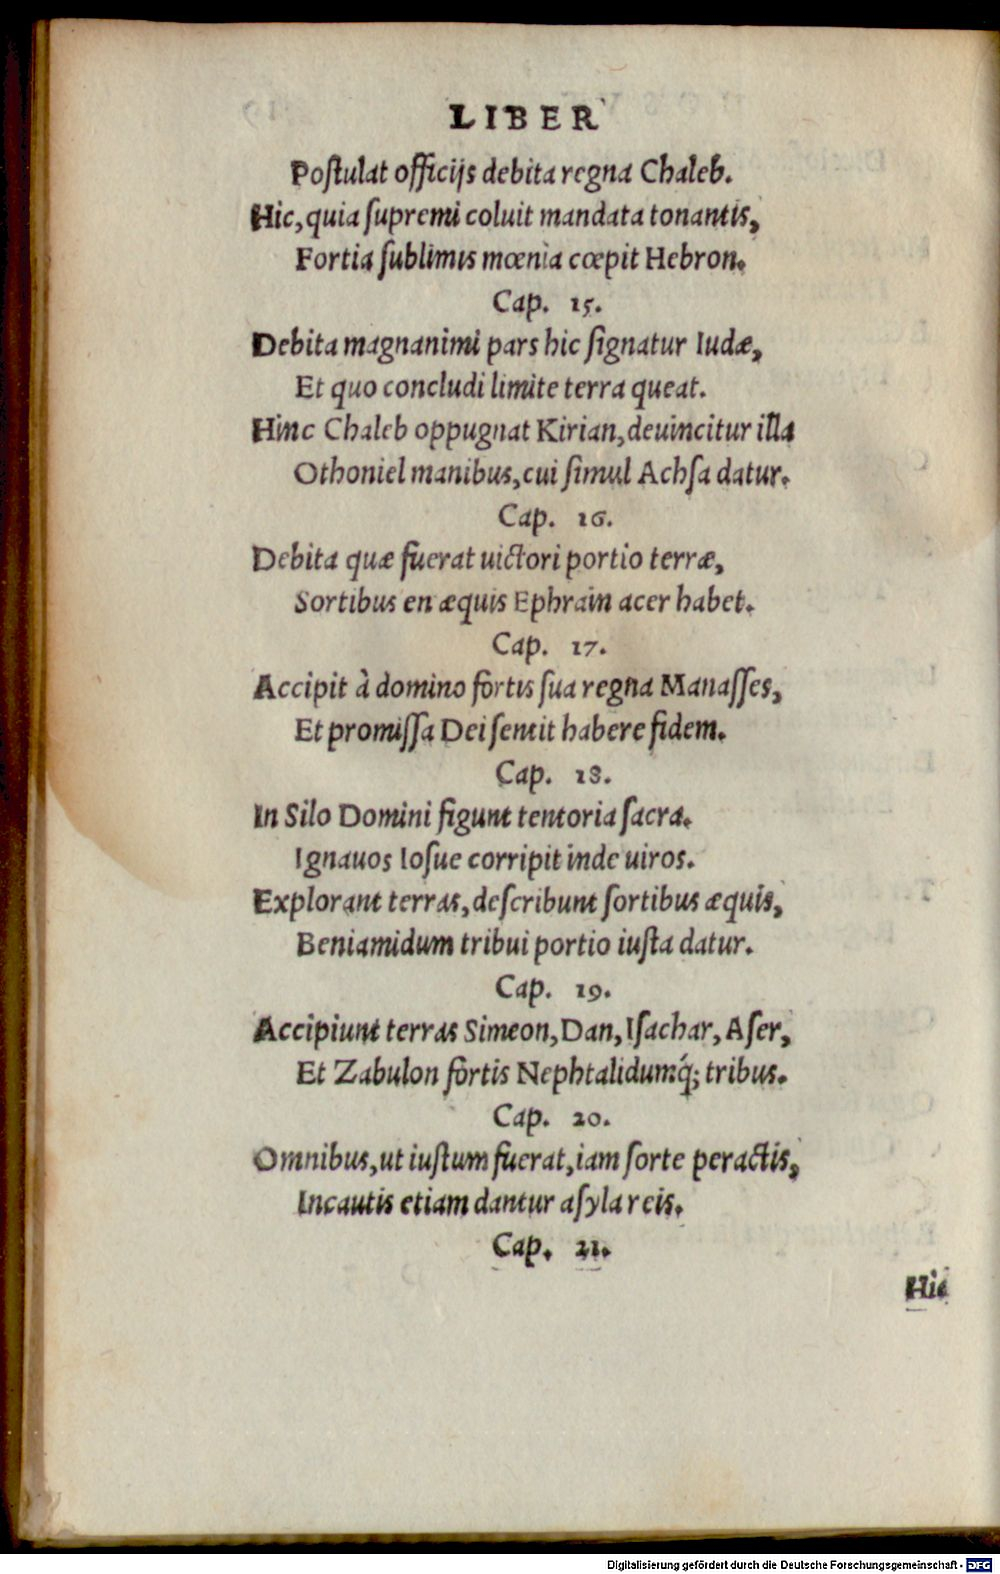 LIBER
Poſtulat officijs debita regna Chaleb.
Hic, quia ſupremi coluit mandata tonantis,
Fortia ſublimis mœnia cœpit Hebron.
Cap. 15.
Debita magnanimi pars hic ſignatur Iudæ,
Et quo concludi limite terra queat.
Hinc Chaleb oppugnat Kirian, deuincitur illa
Othoniel manibus, cui ſimul Achſa datur.
Cap. 16.
Debita quæ fuerat uictori portio terræ,
Sortibus en æquis Ephrain acer habet.
Cap. 17.
Accipit à domino fortis ſua regna Manaſſes,
Et promiſſa Dei ſentit habere fidem.
Cap. 18.
In Silo Domini figunt tentoria ſacra.
Ignauos Ioſue corripit inde uiros.
Explorant terras, deſcribunt ſortibus æquis,
Beniamidum tribui portio iuſta datur.
Cap. 19.
Accipiunt terras Simeon, Dan, Iſachar, Aſer,
Et Zabulon fortis Nephtalidumq́; tribus.
Cap. 20.
Omnibus, ut iuſtum fuerat, iam ſorte peractis,
Incautis etiam dantur aſyla reis.
Cap. 21.
Hic
Digitalisierung gefördert durch die Deutsche Forschungsgemeinschaft - DFG